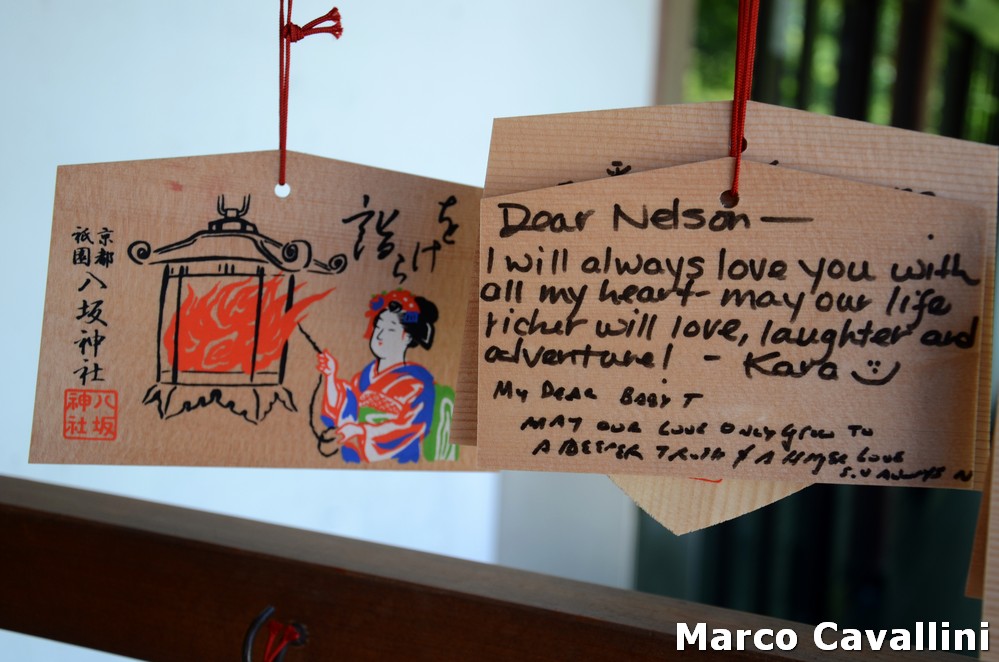 をけら
詣
京都
祇園
八坂神社
八坂
神社
Dear Nelson —
I will always love you with
all my heart - may our life
richer will love, laughter and
adventure! - Kara
My Dear Baby T
May our love only grow to
a deeper truth & a higher love
Marco Cavallini